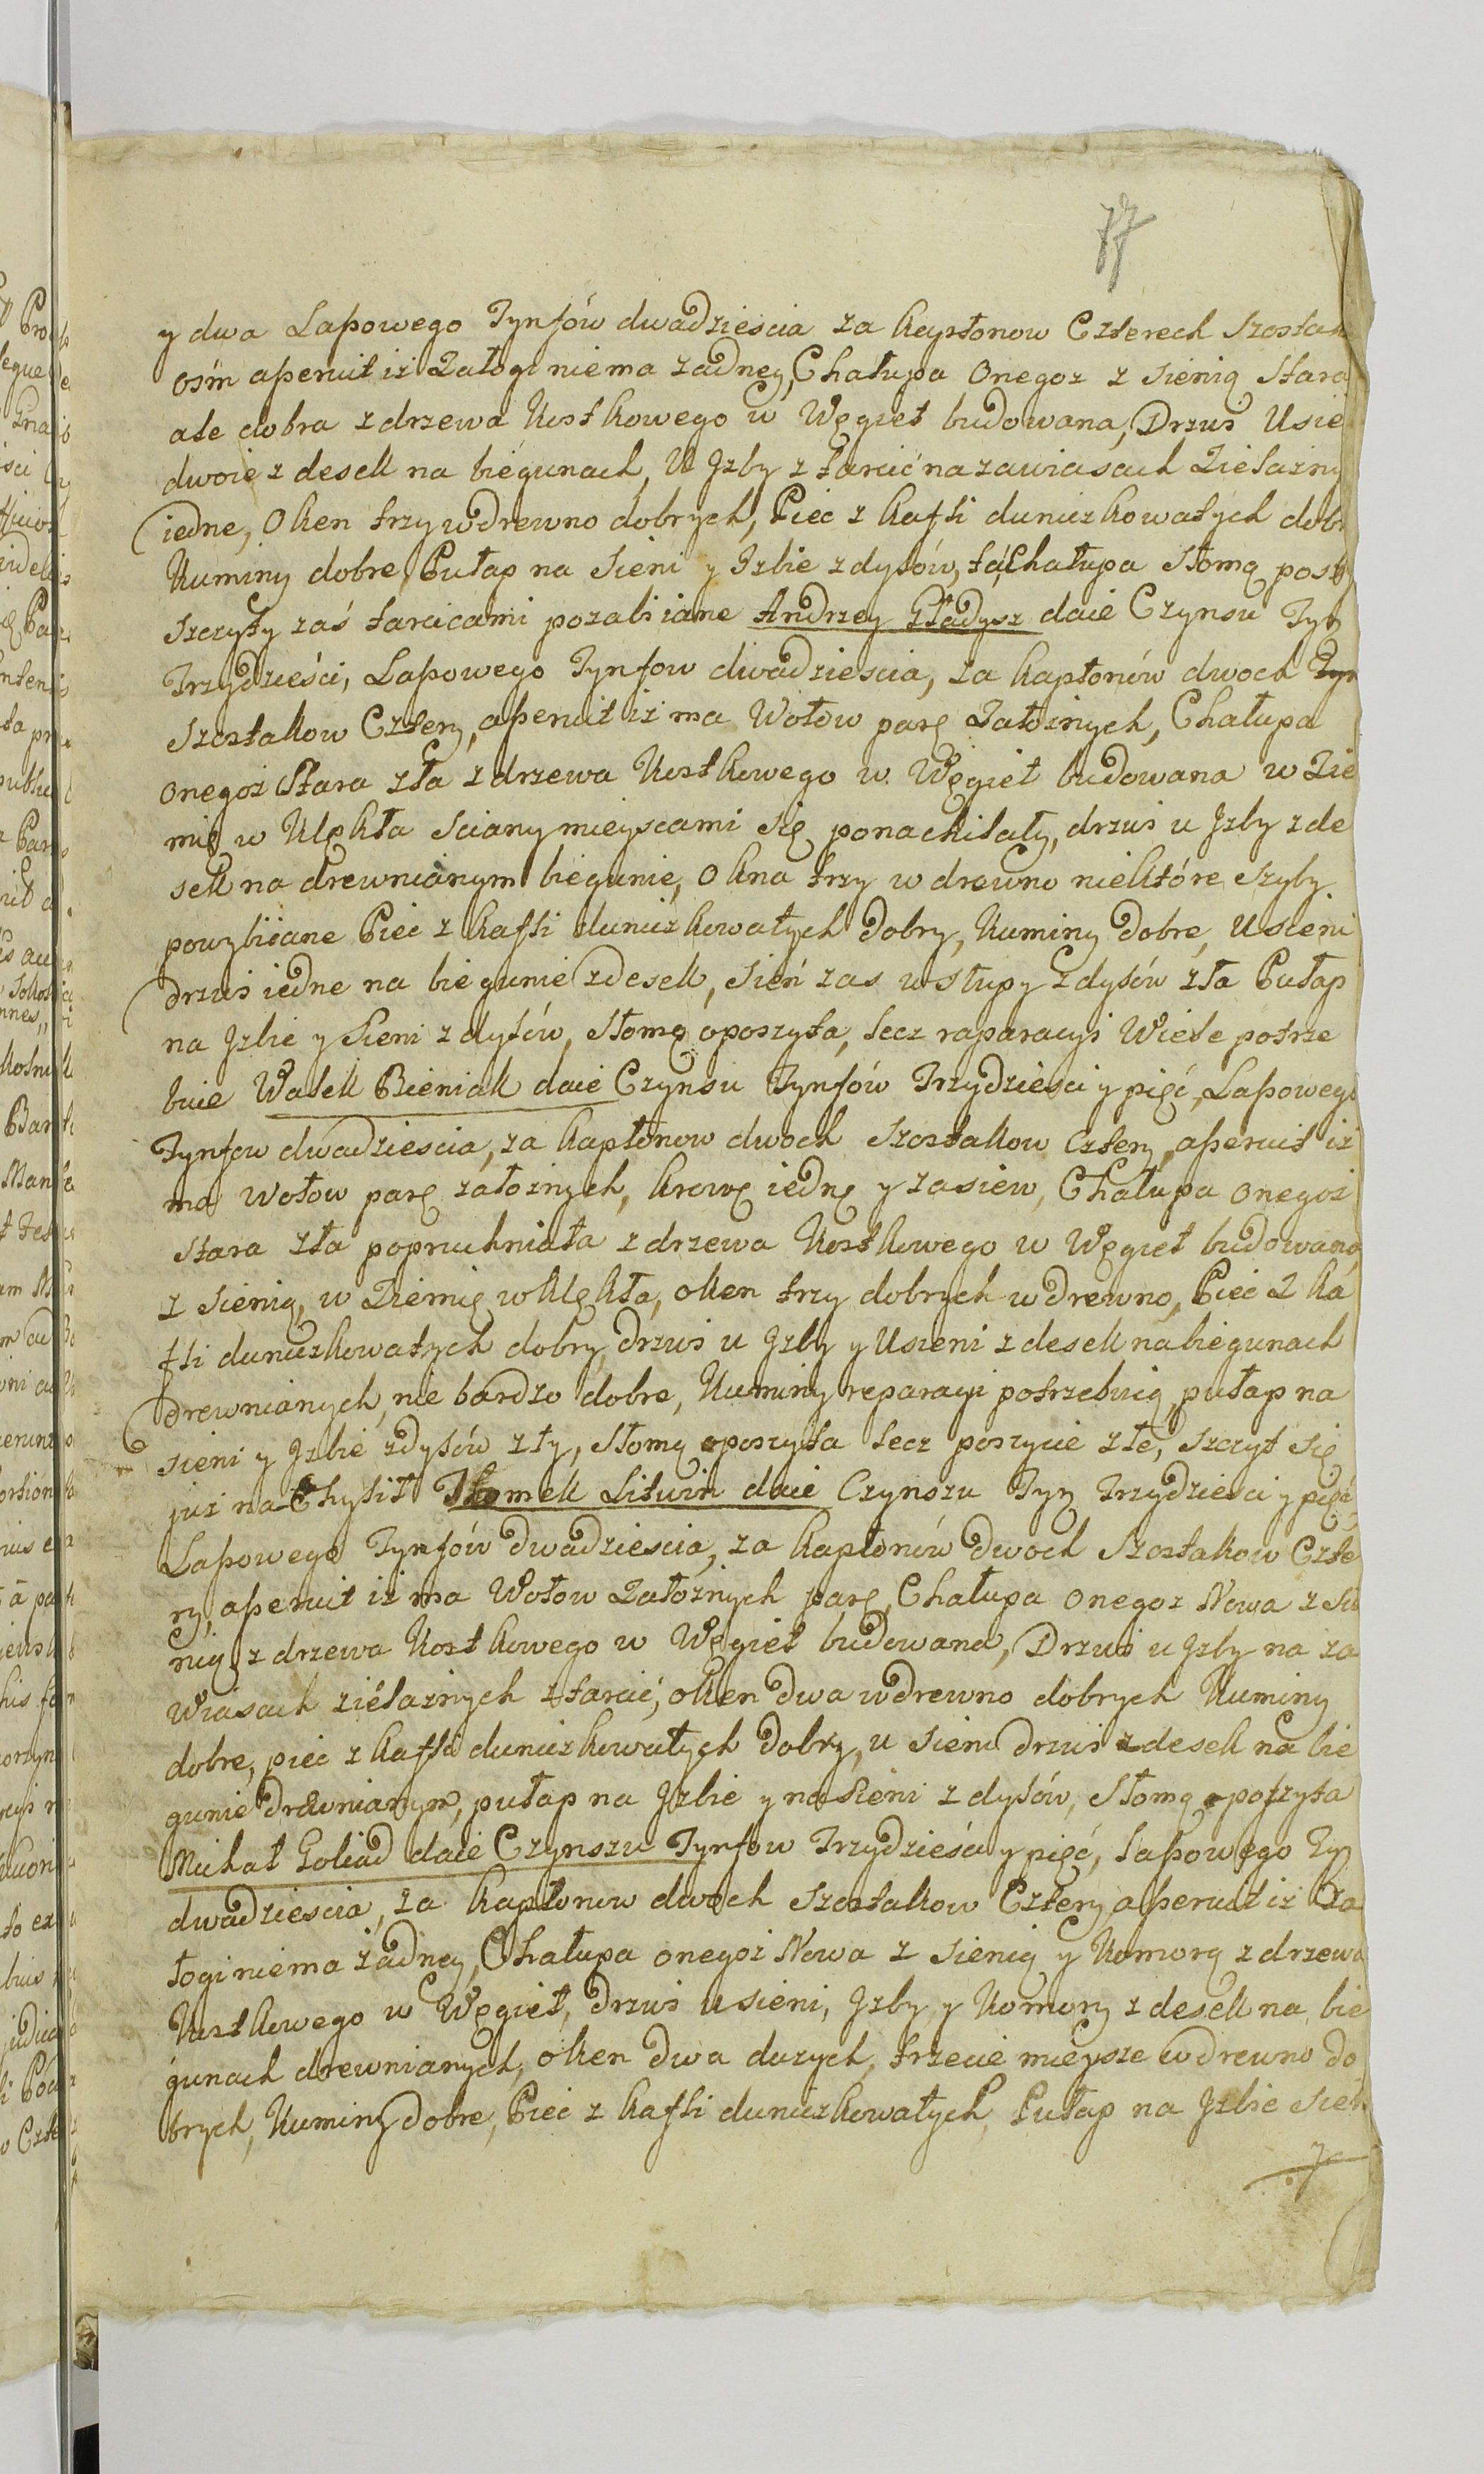 77
y dwa Lapowego Tynfów dwadziescia za kapłonow Czterech Szostak
osm aperuit iz Załogi niema zadney, Chałupa Onegoz z sienią Stara
ale dobra z drzewa Kostkowego w Węgieł budowana, Drzwi Usie
dwoie z desek na biegunach, U Jzby z tarcić na zawiasach Zielazny
iedne, Oken trzy w drewno dobrych, Piec z kafli duniczkowatych dobr
Kuminy dobre Pułap na Sieni y Izbie z dylów, ta Chałupa Słomą posz
Szczyty zaś tarcicami pozabiiane Andrzey Gładysz daie Czynsu Tyn
Trzydzieści, Lapowego Tynfow dwadziescia, za kapłonów dwoch
Szostakow Cztery, aperuit iz ma Wołow parę Załoznych, Chałupa
onegoz Stara zła z drzewa Kostkowego w Węgieł budowana w Zie
mię w Klękła Sciany mieyscami się ponachilały, drzwi u Jzby z de
sek na drewnianym biegunie, Okna trzy w drewno niektóre Szyby
powybiiane Piec z kafli duniczkowatych dobry, Kuminy dobre, Usieni
drzwi iedne na biegunie z desek, Sień zas w słupy z dylów zła Pułap
na Jzbie y Sieni z dylów, Słomą oposzyta, lecz raparacyi Wiele potrze
buie Walek Bieniak daie Czynsu Tynfów Trzydziesci y pięć, Lapowego
Tynfow dwadziescia, za kapłonow dwoch Szostakow cztery, aperuit iz
ma Wołow parę załoznych, krowę iednę y zasiew, Chałupa onegoz
Stara zła popruchniała z drzewa Kostkowego w Węgieł budowana
z Sienią, w Ziemię wklękła, oken trzy dobrych w drewno, Piec z ka
fli duniczkowatych dobry drzwi u Jzby y Usieni z desek na biegunach
drewnianych, nie bardzo dobre, Kuminy reparacyi potrzebuią, pułap na
sieni y Jzbie z dylów zły, Słomą oposzyta lecz poszycie złe, szczyt się
już nachylił Tomek Litwin daie Czynszu Tyn Trzydziesci y pięć
Lapowego Tynfów dwadziescia, za kapłonów dwoch Szostakow Czte
ry, aperuit iz ma Wołow Załoznych parę, Chałupa onegoz Nowa z Sie
nią z drzewa Kostkowego w Węgieł budowana, Drzwi u Jzby na za
wiasach zielaznych z tarcić, oken dwa w drewno dobrych Kuminy
dobre, piec z kafli duniczkowatych dobry, u sieni drzwi z desek na bie
gunie drewnianym, pułap na Jzbie y na Sieni z dylów, Słomą oposzyta
Michał Goliad daie Czynszu Tynfow Trzydzieści y pięć, Lapowego Ty
dwadziescia, za kapłonow dwoch Szostakow Cztery aperuit iz Za
łogi niema żadney, Chałupa onegoż Nowa z Sienią y Komorą z drzewa
Kostkowego w Węgieł, drzwi u sieni, Jzby y Komory z desek na bie
gunach drewnianych, oken dwa duzych, trzecie mieysze w drewno do
brych, Kuminy dobre, Piec z kafli duniczkowatych, Pułap na Jzbie Sień